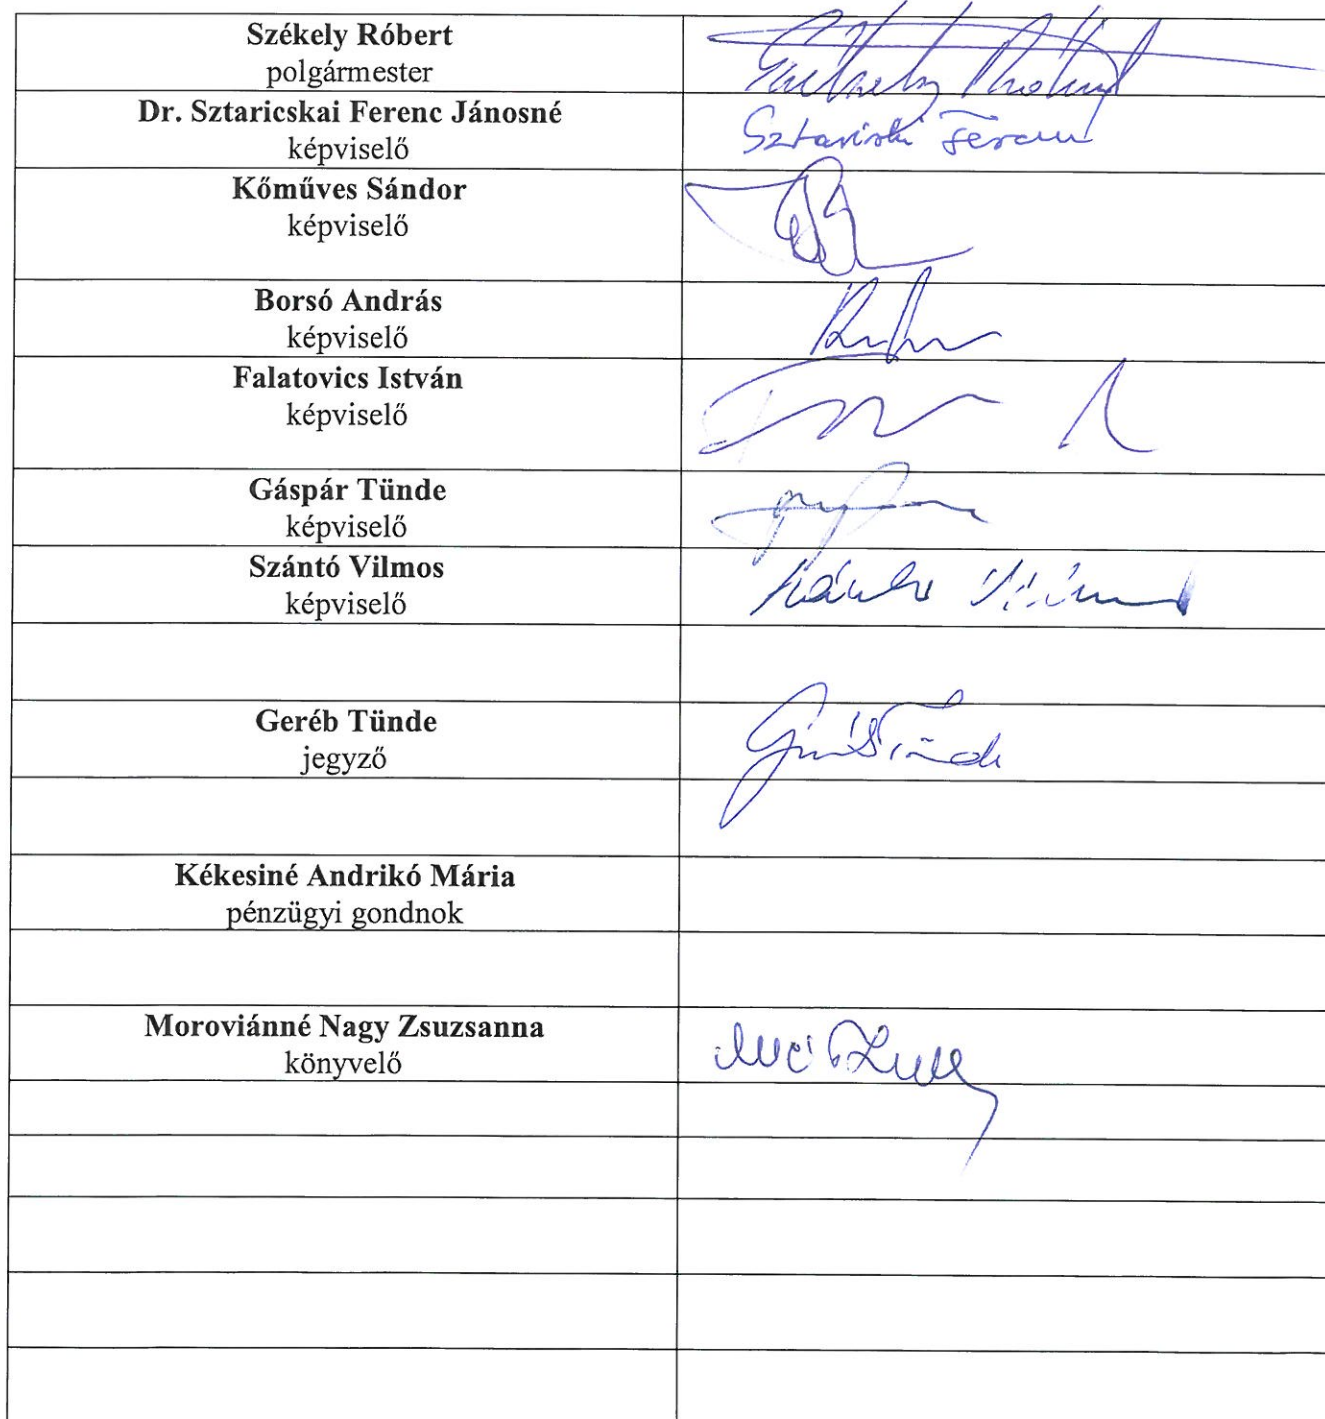 Székely Róbert
polgármester
Dr. Sztaricskai Ferenc Jánosné
Sztaricski Ferenc
képviselő
Kőműves Sándor
képviselő
Borsó András
képviselő
Falatovics István
képviselő
Gáspár Tünde
képviselő
Szántó Vilmos
képviselő
Geréb Tünde
jegyző
Kékesiné Andrikó Mária
pénzügyi gondnok
Moroviánné Nagy Zsuzsanna
könyvelő